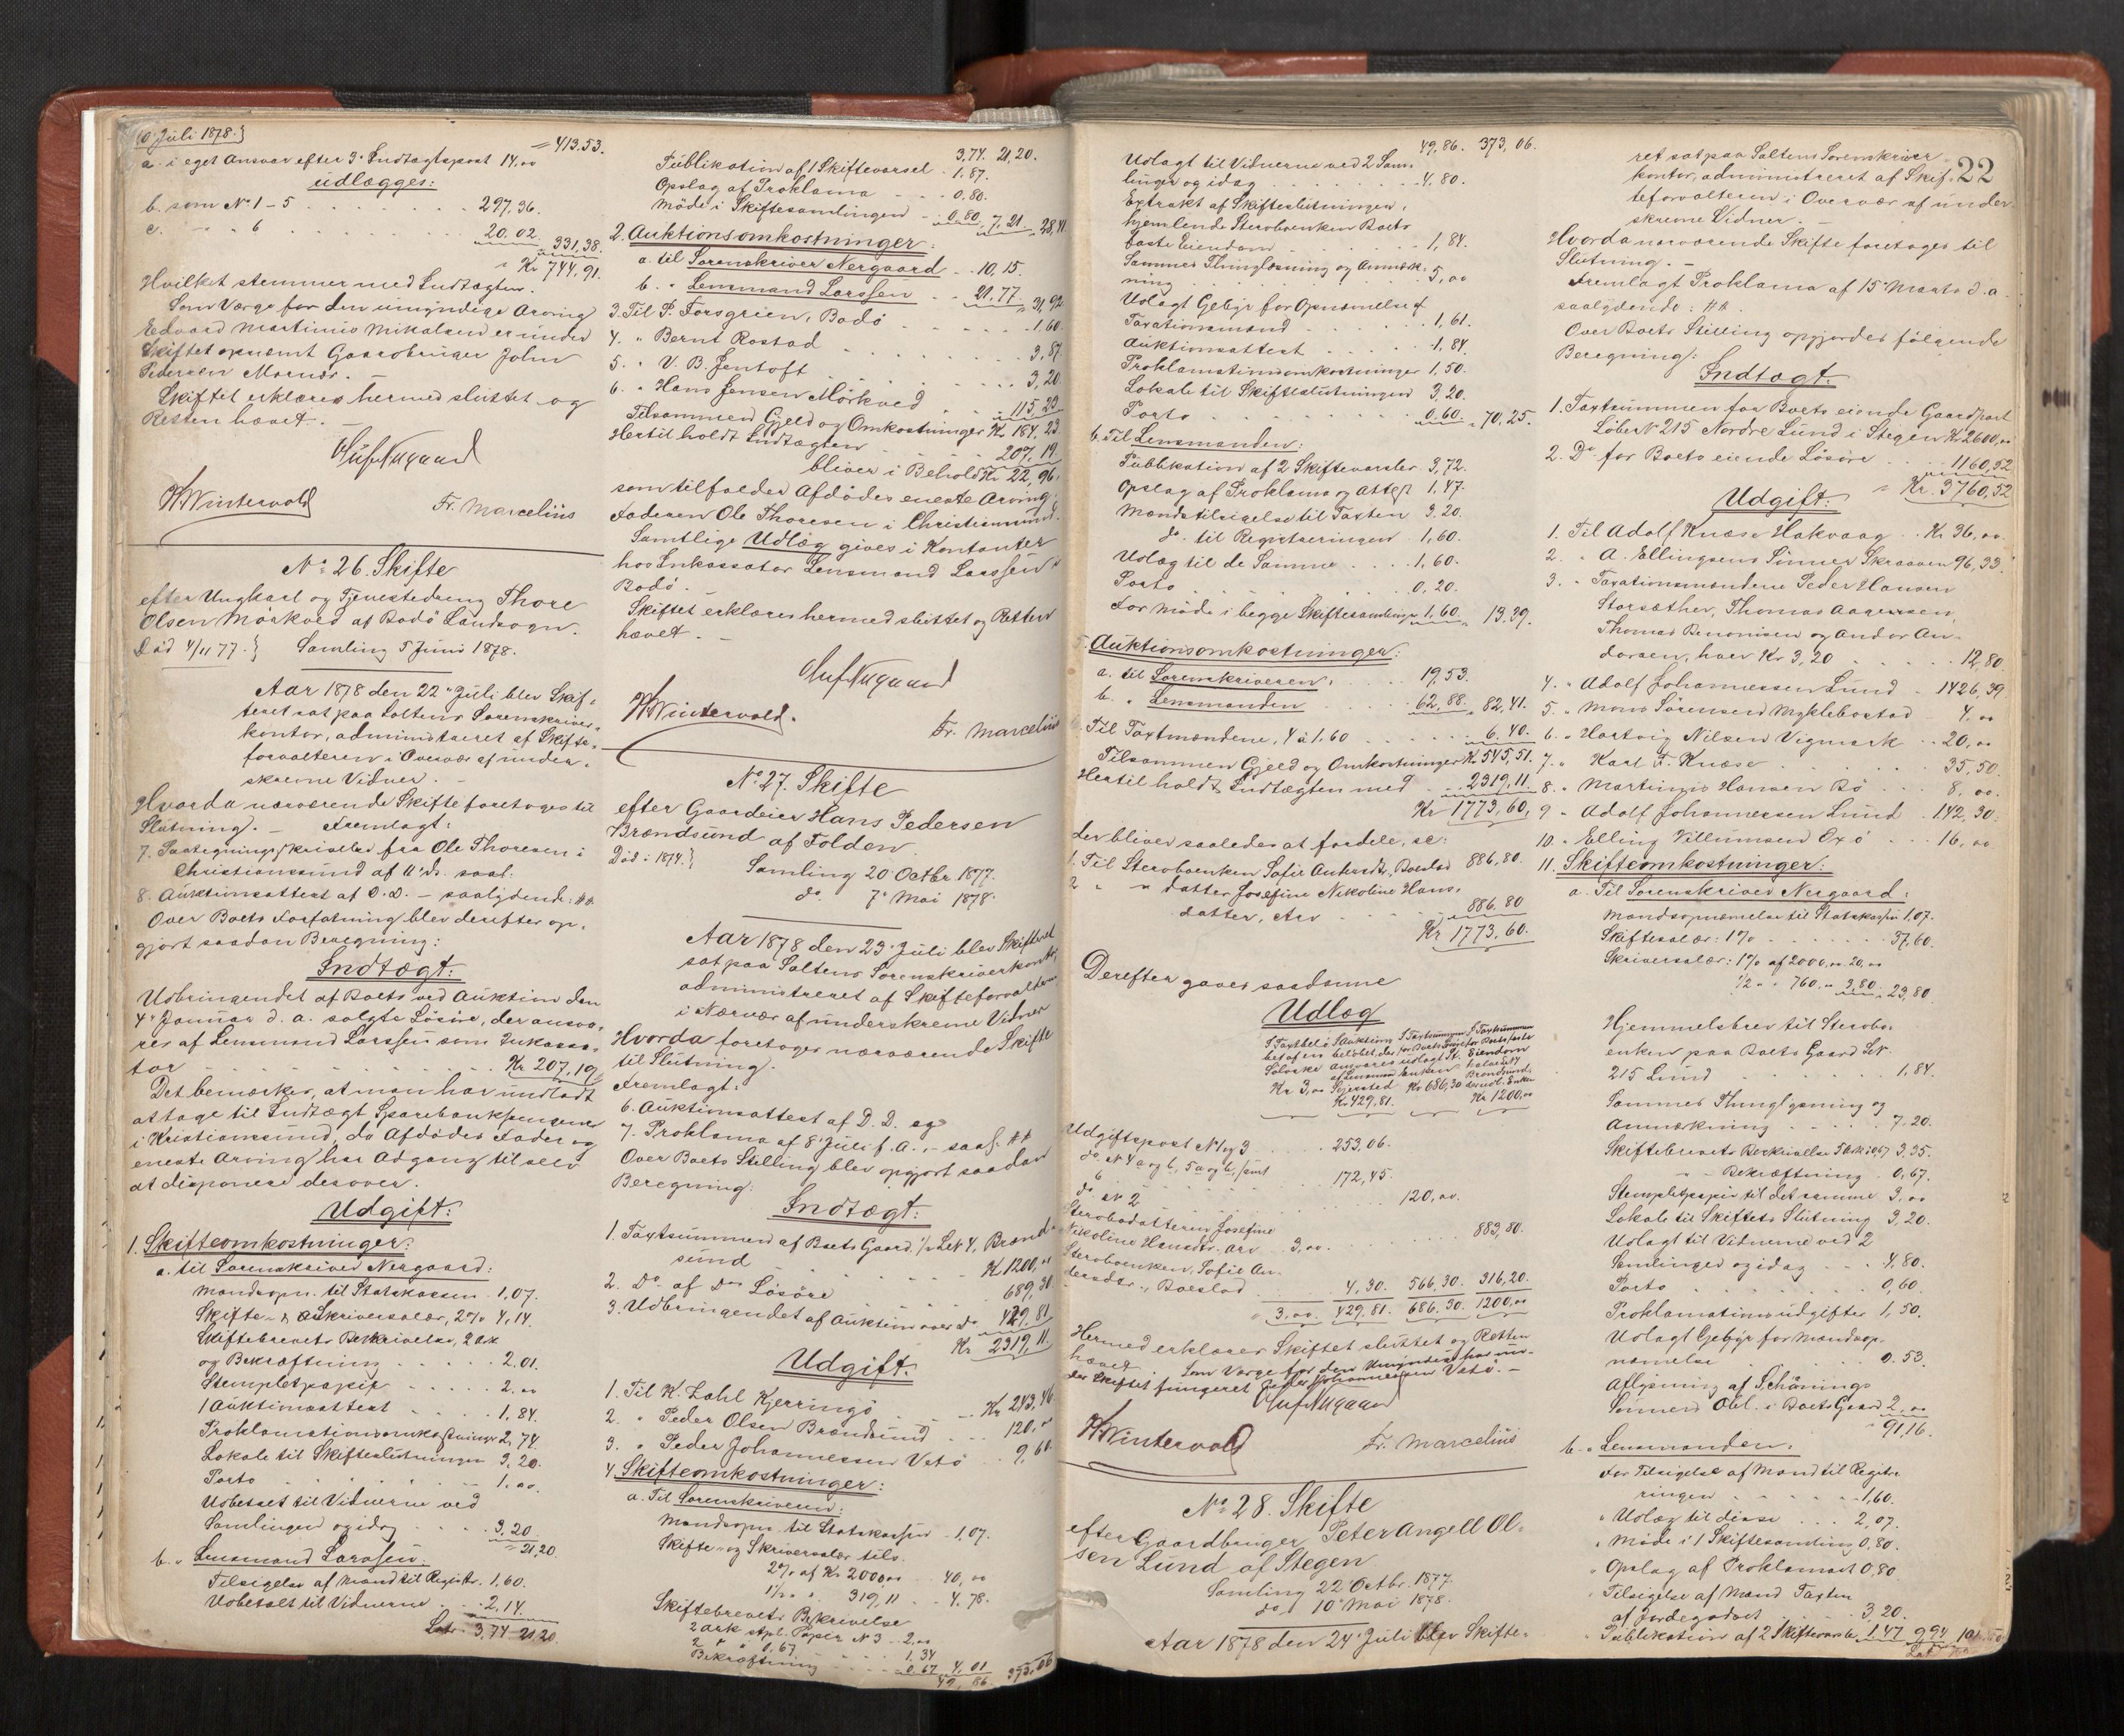 10 Juli 1878.}
= 413.53.
a. i eget Ansvar efter 3die Indtægtspost 14,00
udlægges:
b. som No 1-5 . . . . . 297,36.
c. " " 6 . . . . . 20.02
" 331,38.
" Kr 744,91.
Hvilket stemmer med Indtægten.
Som Værge for den umyndige Arving
Edvard Martinus Mikalsen er under
Skiftet opnævnt Gaardbruger John
Pedersen Mornæs. —
Skiftet erklæres hermed sluttet og
Retten hævet. —
H Wintervold Fr. Marcelius
No 26. Skifte
efter Ungkarl og Tjenestedreng Thore
Olsen Mörkved af Bodö Landsogn.
Död 4/11 77.} Samling 5 Juni 1878.
Aar 1878 den 22de Juli blev Skif-
teret sat paa Saltens Sorenskriver-
kontor, administreret af Skifte-
forvalteren i Overvær af under-
skrevne Vidner. —
Hvorda nærværende Skifte foretoges til
Slutning. — Fremlagt:
7. Paategningsskrivelse fra Ole Thoresen i
Christiansund af 11 ds. saal:
8. Auktionsattest af D. D. — saalydende: ##
Over Boets Forfatning blev derefter op-
gjort saadan Beregning:
Indtægt:
Udbringendet af Boets ved Auktion den
4de Januar d. a. solgte Lösöre, der ansva-
res af Lensmand Larssen som Inkassa-
tor . . . . . Kr 207,19
Det bemærkes, at man har undladt
at tage til Indtægt Sparebankpengene
i Kristiansund, da Afdödes Fader og
eneste Arving har Adgang til selv
at disponere derover.
Udgift:
1. Skifteomkostninger:
a. til Sorenskriver Nergaard:
Mandsopn. til Statskassen 1,07.
Skifte- og Skriversalær, 2% 4,14.
Skiftebrevets Beskrivelse, 2 ark
og Bekræftning . . . . 2.01.
Stempletpapir . . . . 2.00
1 Auktionsattest . . . . 1,84.
Proklamationsomkostninger 2,74.
Lokale til Skifteslutningen 3,20.
Porto . . . . 1,00.
Udbetalt til Vidnerne ved
Samlingen og idag . . . . 3,20
" 21,20.
b. " Lensmand Larssen:
Tilsigelse af Mænd til Registr. 1,60.
Udbetalt til Vidnerne . . 2,14.
Lat. 3,74 21,20.
3,74. 21,20.
Publikation af 1 Skiftevarsel . 1,87.
Opslag af Proklama . . 0,80.
Möde i Skiftesamlingen . . 0,80 7,21 28,41
2. Auktionsomkostninger:
a. til Sorenskriver Nergaard . . 10,15.
b. " Lensmand Larssen . . 21,77 " 31,92
3. Til P. Forsgrien, Bodö . . . . 1,60
4. " Bernt Rostad . . . . 3,87
5. " V. B. Jentoft . . . . 3,20
6. " Hans Jensen Mörkved . . 115,23
Tilsammen Gjeld og Omkostninger Kr 184,23
Hertil holdt Indtægten . . . 207,19
bliver i Behold Kr 22,96,
som tilfalder Afdödes eneste Arving
Faderen Ole Thoresen i Christiansund.
Samtlige Udlæg gives i Kontanter
hos Inkassator Lensmand Larssen i
Bodö.
Skiftet erklæres hermed sluttet og Retten
hævet. —
H Wintervold. Fr. Marcelius
No 27. Skifte
efter Gaardeier Hans Pedersen
Brændsund af Folden.
Död: 1874.} Samling 20 Octbr. 1877.
do 7de Mai 1878.
Aar 1878 den 23de Juli blev Skifteret
sat paa Saltens Sorenskriverkontor,
administreret af Skifteforvalteren
i Nærvær af underskrevne Vidner
Hvorda foretoges nærværende Skifte
til Slutning.
Fremlagt:
6. Auktionsattest af D. D. og
7. Proklama af 8 Juli f. A. — saal. ##
Over Boets Stilling blev opgjort saadan
Beregning:
Indtægt:
1. Taxtsummen af Boets Gaard, Lb No 4, Brænd-
sund . . . . Kr 1200,00
2. Do af Do Lösöre . . . . 689,30
3. Udbringendet af Auktion over do 429,81
Kr 2319,11.
Udgift:
1. Til K. Zahl Kjerringö . . . Kr 243,46
2. " Peder Olsen Brændsund . . . 120,00
3. " Peder Johannessen Vatö . . 9,60
4. Skifteomkostninger:
a. Til Sorenskriveren:
Mandsopn. til Statskassen . 1,07.
Skifte- og Skriversalær tils.
2% af Kr 2000,00 . . 40,00
1½ " " 319,11 . . 4.78.
Skiftebrevets Beskrivelse
2 ark stpl. Papir No 3 . . 2,00
2 " " 0,67 . . 1,34
Bekræftning . . 0,67 4,01
49,86 373,06
49,86. 373,06.
Udlagt til Vidnerne ved 2 Sam-
linger og idag . . . . 4,80.
Extrakt af Skifteslutningen,
hjemlende Sterboenken Boets
faste Eiendom . . . . 1,84.
Sammes Thinglæsning og Anmærk-
ning . . . . 5,00
Udlagt Gebyr for Opnævnelse af
Taxationsmænd . . . . 1,61.
Auktionsattest . . . . 1,84.
Proklamationsomkostninger 1,50.
Lokale til Skifteslutningen 3,20.
Porto . . . . 0,60 " 70,25.
b. Til Lensmanden:
Publikation af 2 Skiftevarsler 3,72.
Opslag af Proklama og Attest 1,47.
Mændstilsigelse til Taxten 3.20.
do. til Registreringen 1,60.
Udlæg til de Samme . . . 1,60.
Porto . . . 0,20.
For Möde i begge Skiftesamlinger 1,60 " 13.39.
5. Auktionsomkostninger:
a. til Sorenskriveren . . . 19,53.
b. " Lensmanden . . . 62,88 " 82,41.
6. Til Taxtmændene, 4 à 1,60 . . . 6,40.
Tilsammen Gjeld og Omkostninger Kr 545,51.
Hertil holdt Indtægten med . . 2319,11
Kr 1773,60,
der bliver saaledes at fordele, se:
1. Til Sterboenken Sofie Andersdtr, Boeslod 886,80.
2 " " datter Josefine Nikoline Hans-
datter, Arv . . . . 886.80
Kr 1773,60.
Derefter gaves saadanne
Udlæg
Kr 3,00 Kr 429,81. Kr 686,30 Kr 1200,00
Udgiftspost No 1 og 3 . . 253,06.
do No 4 a og b, 5 a og b, samt
6 . . . . 172,45.
do No 2 . . . . 120,00.
Sterbodatteren Josefine
Nikoline Hansdtr. Arv 3,00. . . . 883,80.
Sterboenken, Sofie An-
dersdtr., Boeslod . . 4,30. 566,30. 316,20.
" 3,00. 429,81. 686.30. 1200,00
Hermed erklæres Skiftet sluttet og Retten
hævet. Som Værge for den Umyndige har un-
der Skiftet fungeret Peder Johannessen Vatö. —
H Wintervold Fr. Marcelius
No 28. Skifte
efter Gaardbruger Peter Angell Ol-
sen Lund af Stegen
Samling 22 Octbr. 1877.
do 10de Mai 1878.
Aar 1878 den 24de Juli blev Skifte-
22
ret sat paa Saltens Sorenskriver-
kontor, administreret af Skif-
teforvalteren i Overvær af under-
skrevne Vidner. —
Hvorda nærværende Skifte foretoges til
Slutning. —
Fremlagt Proklama af 15 Marts d. a.
saalydende: ##.
Over Boets Stilling opgjordes fölgende
Beregning:
Indtægt.
1. Taxtsummen for Boets eiende Gaardpart
Löbe No 215 Nordre Lund i Stegen Kr 2600,00
2. Do for Boets eiende Lösöre . . 1160,52
" Kr. 3760,52
Udgift:
1. Til Adolf Knæs Hakvaag . . Kr 36,00.
2. " A. Ellingsens Sönner Skraaven 96,33.
3. " Taxationsmændene Peder Hansen
Storsæther, Thomas Aagesen,
Thomas Benonisen og Andor An-
dorsen, hver Kr 3,20 . . . 12,80
4. " Adolf Johannessen Lund . 1426,39
5. " Mons Sørensen Myklebostad 4,00
6. " Hartvig Nilsen Vigmark . . 20,00
7. " Karl F. Knæs . . . 35,50.
8. " Martinus Hansen Bö . . 8,00.
9 " Adolf Johannessen Lund . 142,30.
10. " Elling Villumsen Oxö . . . 16,00
11. Skifteomkostninger:
a. Til Sorenskriver Nergaard:
Mandsopnævnelse til Statskassen 1,07.
Skiftesalær: 1% . . . . 37,60.
Skriversalær: 1% af 2000,00 20,00
1/2 " " 760,00 3,80 " 23,80
Hjemmelsbrev til Sterbo-
enken paa Boets Gaard LNo
215 Lund . . . . 1,84.
Sammes Thinglæsning og
Anmærkning . . . . 7.20.
Skiftebrevets Beskrivelse 5 Ark à 0,67 3,35.
" " Bekræftning . 0,67.
Stempletpapir til det samme 3,00
Lokale til Skiftets Slutning 3,20.
Udlagt til Vidnerne ved 2
Samlinger og idag . . . 4,80.
Porto . . . . 0,60
Proklamationsudgifter 1,50.
Udlagt Gebyr for Mandsop-
nævnelse . . . 0.53.
Aflysning af Schönings
Sönners Obl. i Boets Gaard 2,00
91,16.
b. " Lensmanden:
For Tilsigelse af Mænd til Registre-
ringen . . . . 1,60.
" Udlæg til disse . . . 2,07.
" Möde i 1 Skiftesamling 0,80.
" Opslag af Proklamaet 0,80.
" Tilsigelse af Mænd Taxten
af Jordegodset . . . 3,20.
" Publikation af 2 Skiftevarsler 1,47 9,94